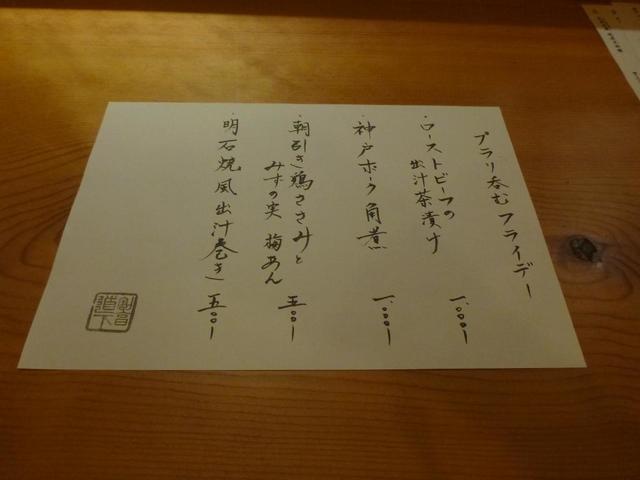 プラリ呑むフライデー
・ローストビーフの
出汁茶漬け 一.〇〇〇ー
・神戸ポーク角煮 一.〇〇〇ー
・朝引き鶏ささみと
みずの実 梅あん 五〇〇ー
・明石焼風出汁巻き 五〇〇ー